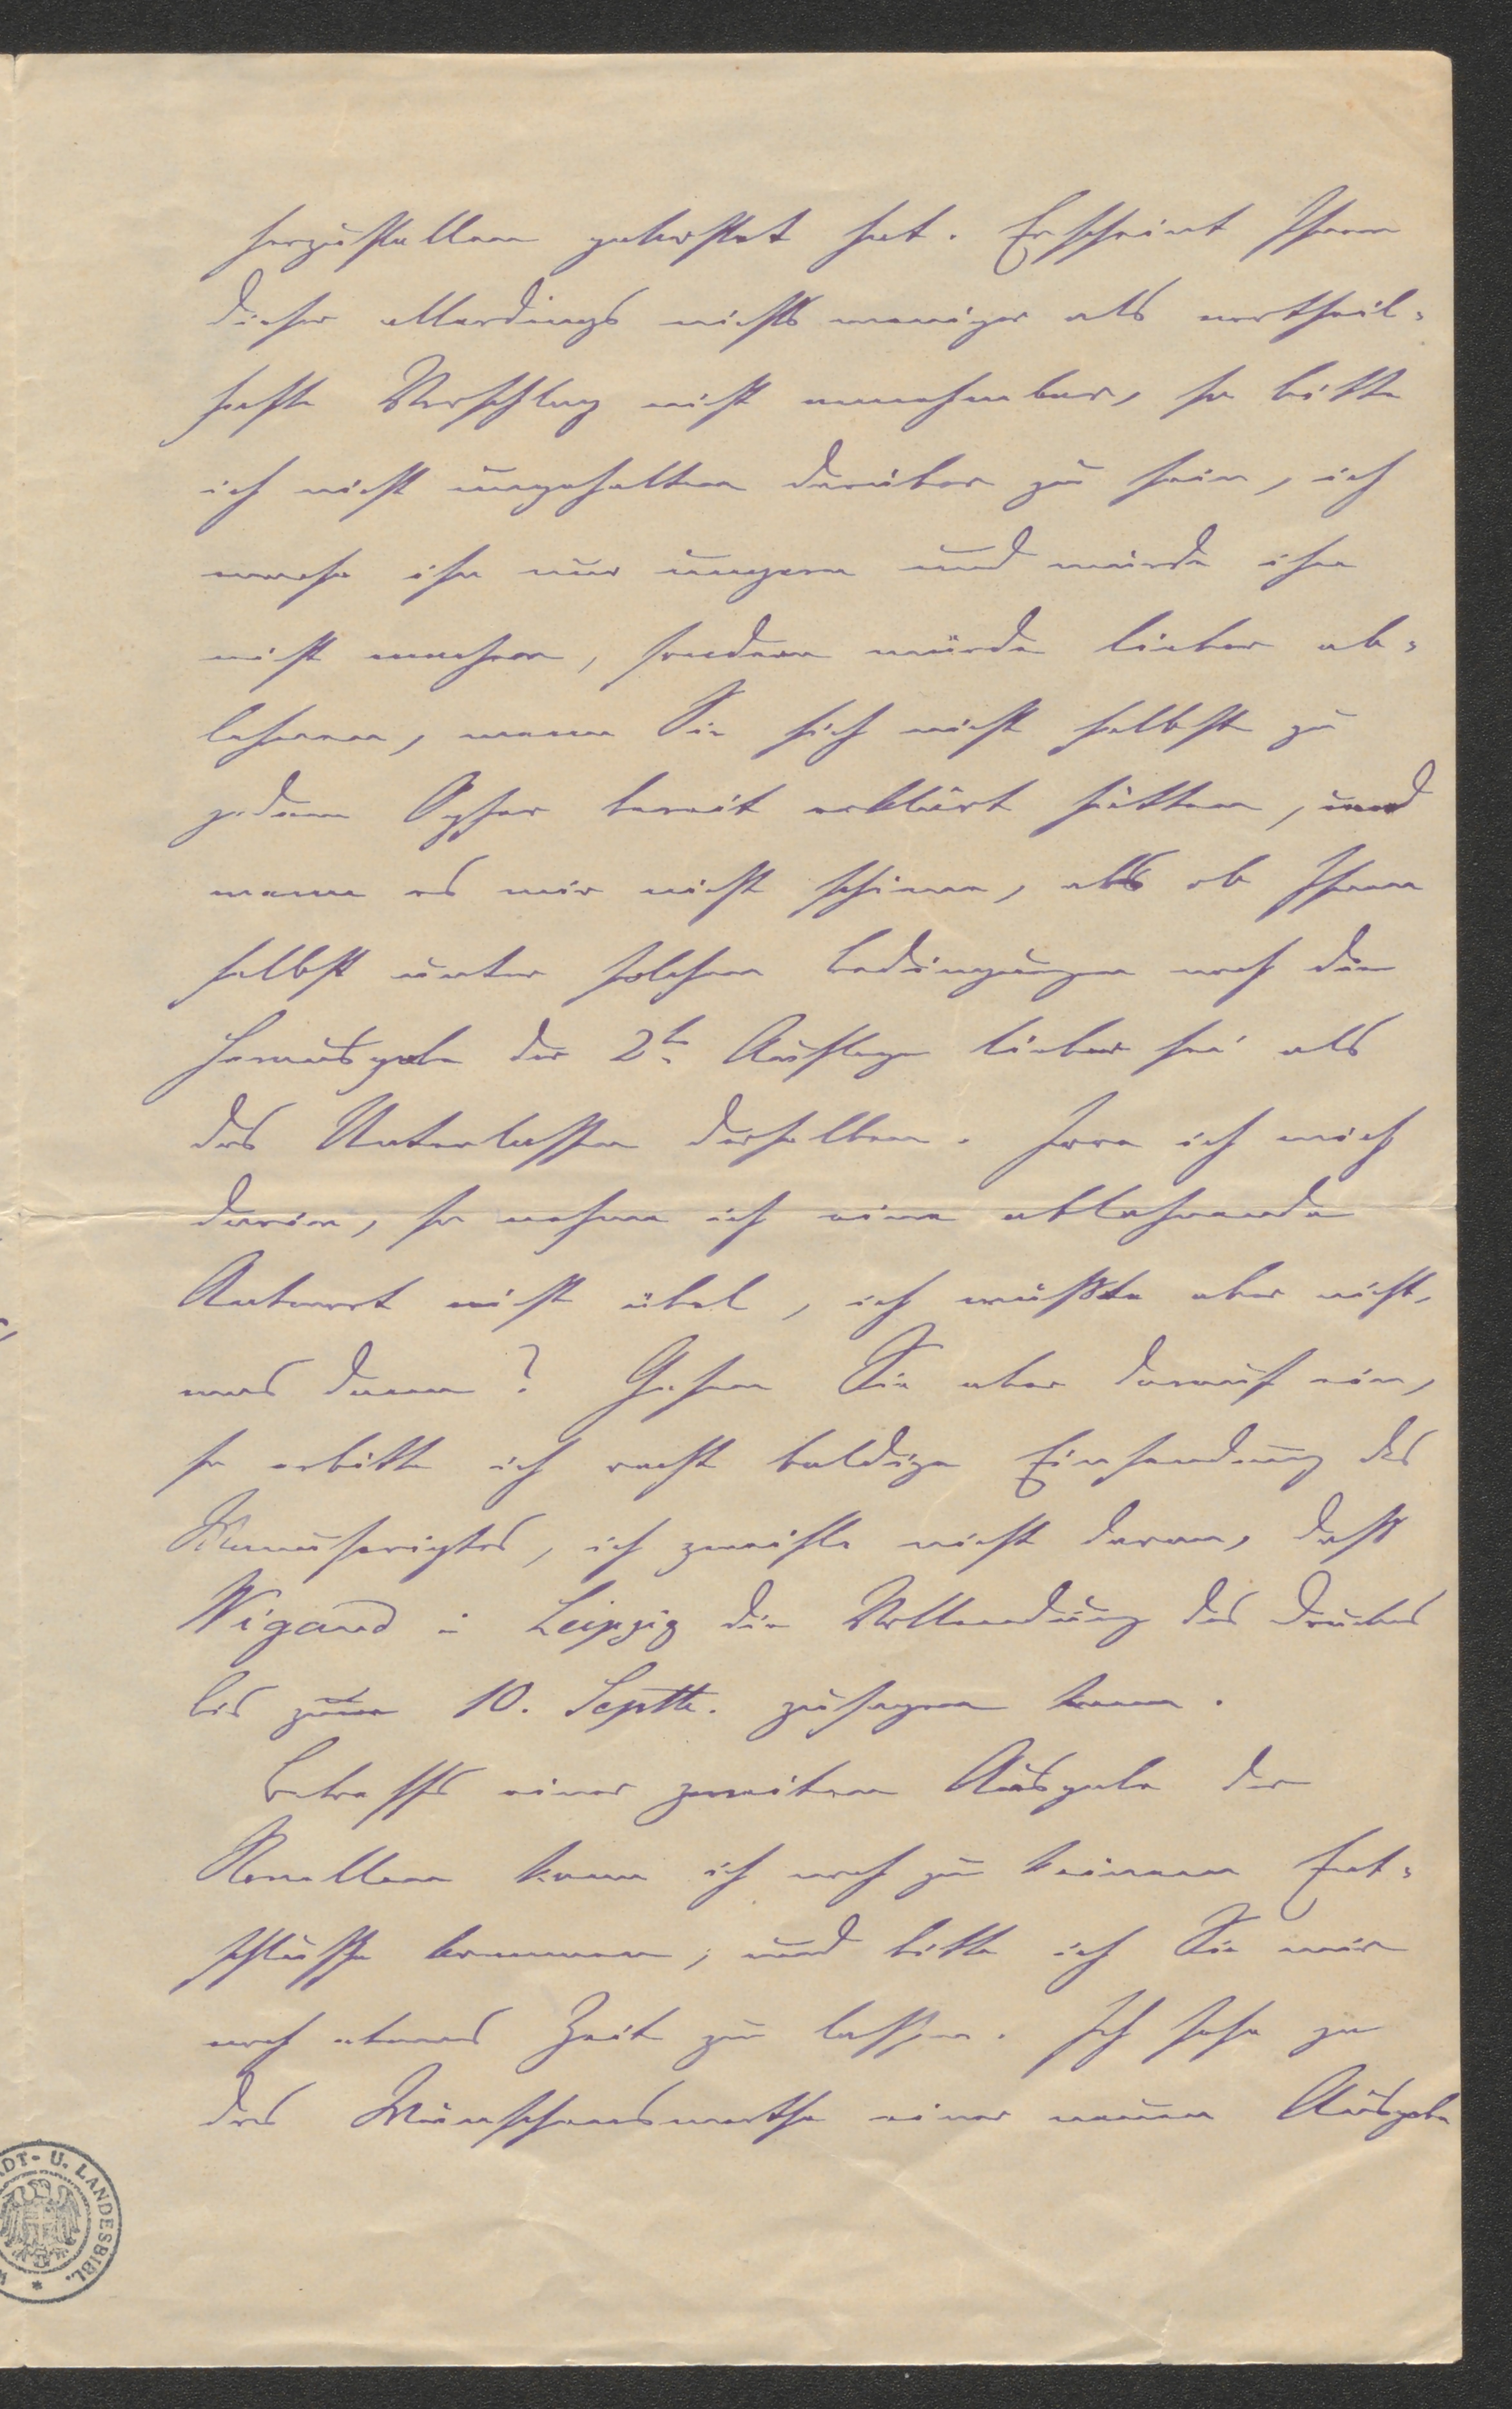 herzustellen gekostet hat. Erscheint Ihnen
dieser allerdings nichts weniger als vortheil-
hafte Vorschlag nicht annehmbar, so bitte
ich nicht ungehalten darüber zu sein, ich
mache ihn nur ungern und würde ihn
nicht machen, sondern würde lieber ab-
lehnen, wenn Sie sich nicht selbst zu
jedem Opfer bereit erklärt hätten, und
wenn es mir nicht schiene, als ob Ihnen
selbst unter solchen Bedingungen noch die
Herausgabe der 2te Auflage lieber sei als
das Unterlassen derselben. Irre ich mich
darin, so nehme ich eine ablehnende
Antwort nicht übel, ich wüßte aber nicht,
was dann? Gehen Sie aber darauf ein,
so erbitte ich recht baldige Einsendung des
Manuscriptes, ich zweifle nicht daran, daß
Wigand in Leipzig die Vollendung des Druckes
bis zum 10. Septbr. zusagen kann.
Betreffs einer zweiten Ausgabe der
Novellen kann ich noch zu keinem Ent-
schlusse kommen, und bitte ich Sie mir
noch etwas Zeit zu lassen. Ich sehe ja
das Wünschenswerthe einer neuen Ausgabe
DT- U. LANDESBIBL. *